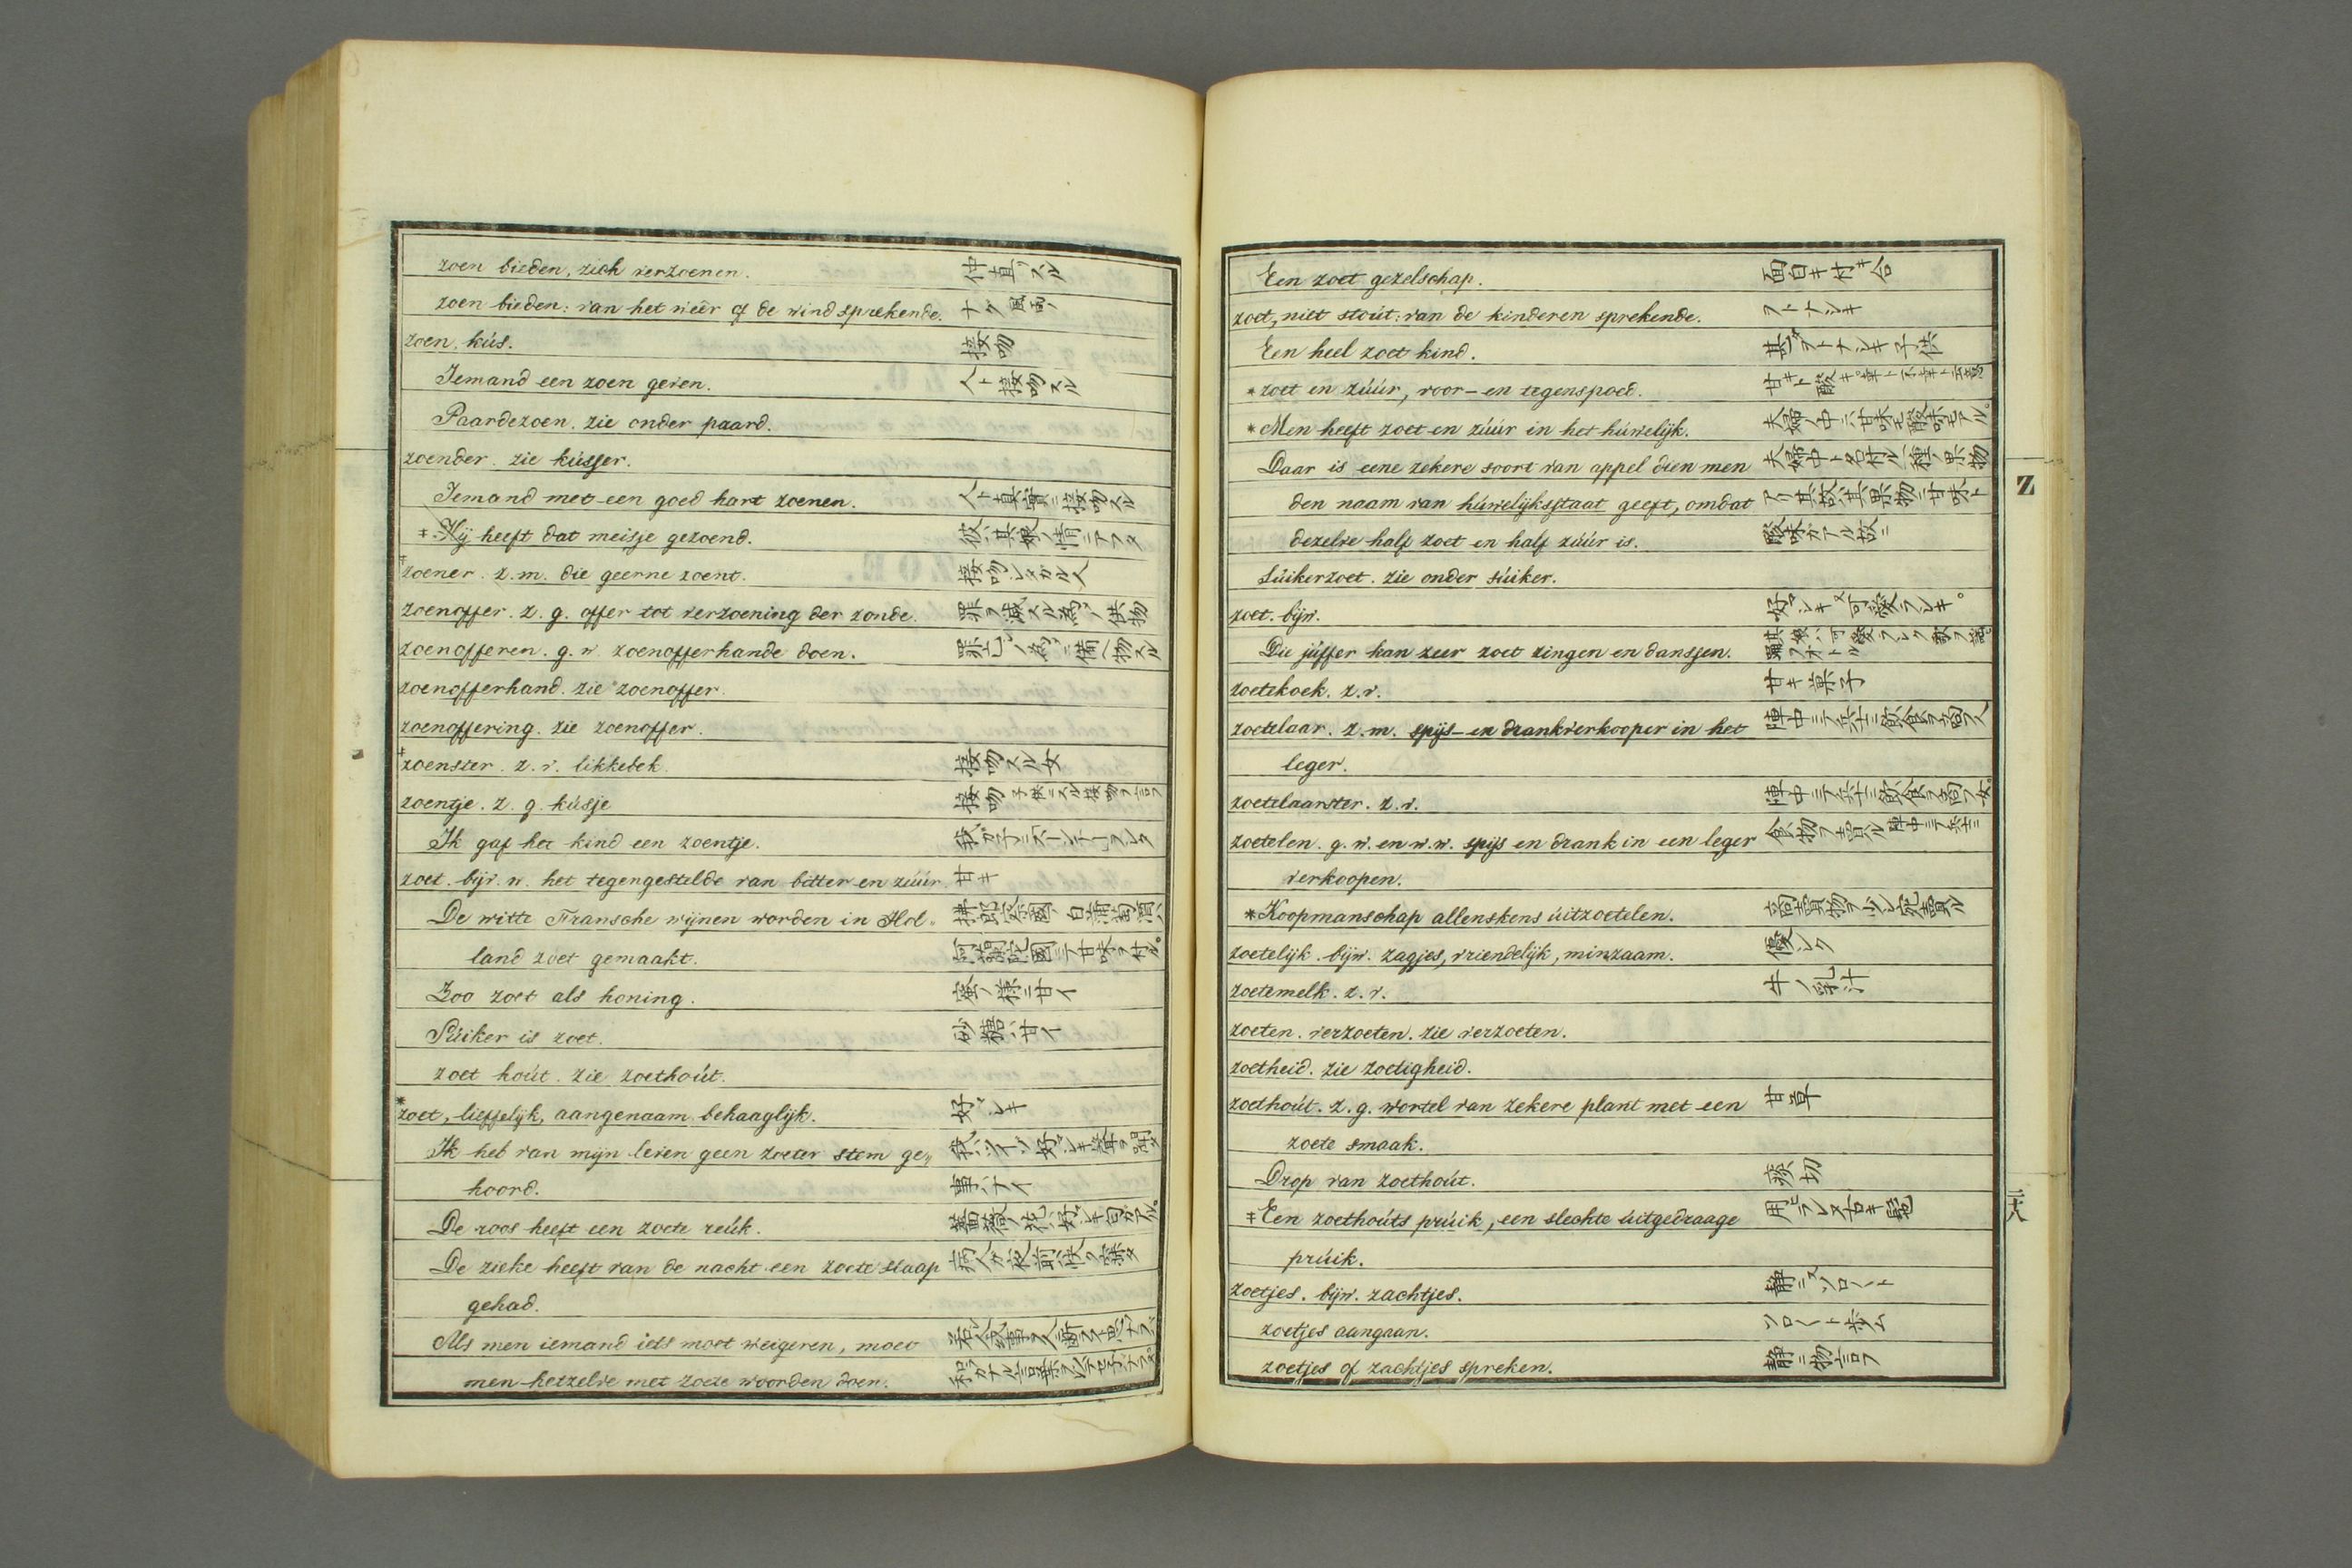 zoen bieden, zich verzoenen. 仲直リスル
zoen bieden: van het wéér of de wind sprekende. ナグ 風雨ノ
zoen. kús. 接吻
Iemand een zoen geven. 人ト接吻スル
Paardezoen. zie onder paard.
zoender. zie kússer.
Iemand met een goed hart zoenen. 人ト真實ニ接吻スル
‡ Hij heeft dat meisje gezoend. 彼ハ其娘ノ情ニアフタ
‡zoener. z.m. die geerne zoent. 接吻シタガル人
zoenoffer. z. g. offer tot verzoening der zonde. 罪ヲ滅スル為ノ供物
zoenofferen. g. w. zoenofferhande doen. 罪亡シノ為ニ備ヘ物スル
zoenofferhand. zie zoenoffer.
zoenoffering. zie zoenoffer.
‡zoenster. z. v. likkebek. 接吻スル女
zoentje. z. g. kúsje 接吻 子供ニスル接吻ヲ言フ
Ik gaf het kind een zoentje.
zoet. bijv. w. het tegengestelde van bitter en zúúr. 甘キ
De witte Fransche wijnen worden in Hol„ 拂郎察國ノ白葡萄酒ハ
land zoet gemaakt. 阿蘭陀國ニテ甘味ヲ付ル。
Zoo zoet als honing. 蜜ノ様ニ甘イ
Súiker is zoet. 砂糖ハ甘イ
zoet hoút. zie zoethoút.
*zoet, lieffelijk, aangenaam. behaaglijk. 好マシキ
Ik heb van mijn leven geen zoeter stem ge„ 我ハツイゾ好マシキ聲ヲ聞タ
hoord. 事ハナイ
De roos heeft een zoete reúk. 薔薇ノ花ハ好マシキ匂ガアル。
De zieke heeft van de nacht een zoete slaap 病人ガ夜前快ク寐タ
gehad.
Als men iemand iets moet weigeren, moet
men hetzelve met zoete woorden doen.
Een zoet gezelschap. 面白キ付キ合
zoet, niet stoút: van de kinderen sprekende. ヲトナシキ
Een heel zoet kind. 甚ダヲトナシキ子供
* zoet en zúúr, voor- en tegenspoed. 甘キト酸キ。幸ト不幸ト云意
* Men heeft zoet en zúúr in het húwelijk. 夫婦ノ中ニハ甘味モ酸味モアル。
Daar is eene zekere soort van appel dien men 夫婦中ト名付ル一種ノ果物
den naam van húwelijksstaat geeft, omdat アリ其故ハ其果物ニ甘味ト
dezelve half zoet en half zúúr is. 酸味ガアル故ニ
Súikerzoet. zie onder súiker.
zoet. bijw. 好マシキ又可愛ラシキ。
Die júffer kan zeer zoet zingen en danssen. 其娘ハ可愛ラシク歌ヲ謡ヒ踊ヲオドル
zoetekoek. z. v. 甘キ菓子
zoetelaar. z. m. spijs- en drankverkooper in het 陣中ニテ兵士ニ飲食ヲ商フ人
leger.
zoetelaarster. z. v. 陣中ニテ兵士ニ飲食ヲ商フ女。
zoetelen. g. w. en w. w. spijs en drank in een leger 食物ヲ賣ル 陣中ニテ兵士ニ
verkoopen.
* Koopmanschap allenskens úitzoetelen. 商賣物ヲ少シ宛賣ル
zoetelijk. bijw. zagjes, vriendelijk, minzaam. 優シク
zoetemelk. z. v. 牛ノ乳汁
zoeten. verzoeten. zie verzoeten.
zoetheid. zie zoetigheid.
zoethoút. z. g. wortel van zekere plant met een 甘草
zoete smaak.
Drop van zoethoút. 痰切
‡ Een zoethoúts prúik, een slechte úitgedraage 用ヒラレヌ古キ鬘
prúik.
zoetjes. bijw. zachtjes. 静ニ又ソロ〱ト
zoetjes aangaan. ソロ〱ト歩ム
zoetjes of zachtjes spreken. 静ニ物言フ
Z